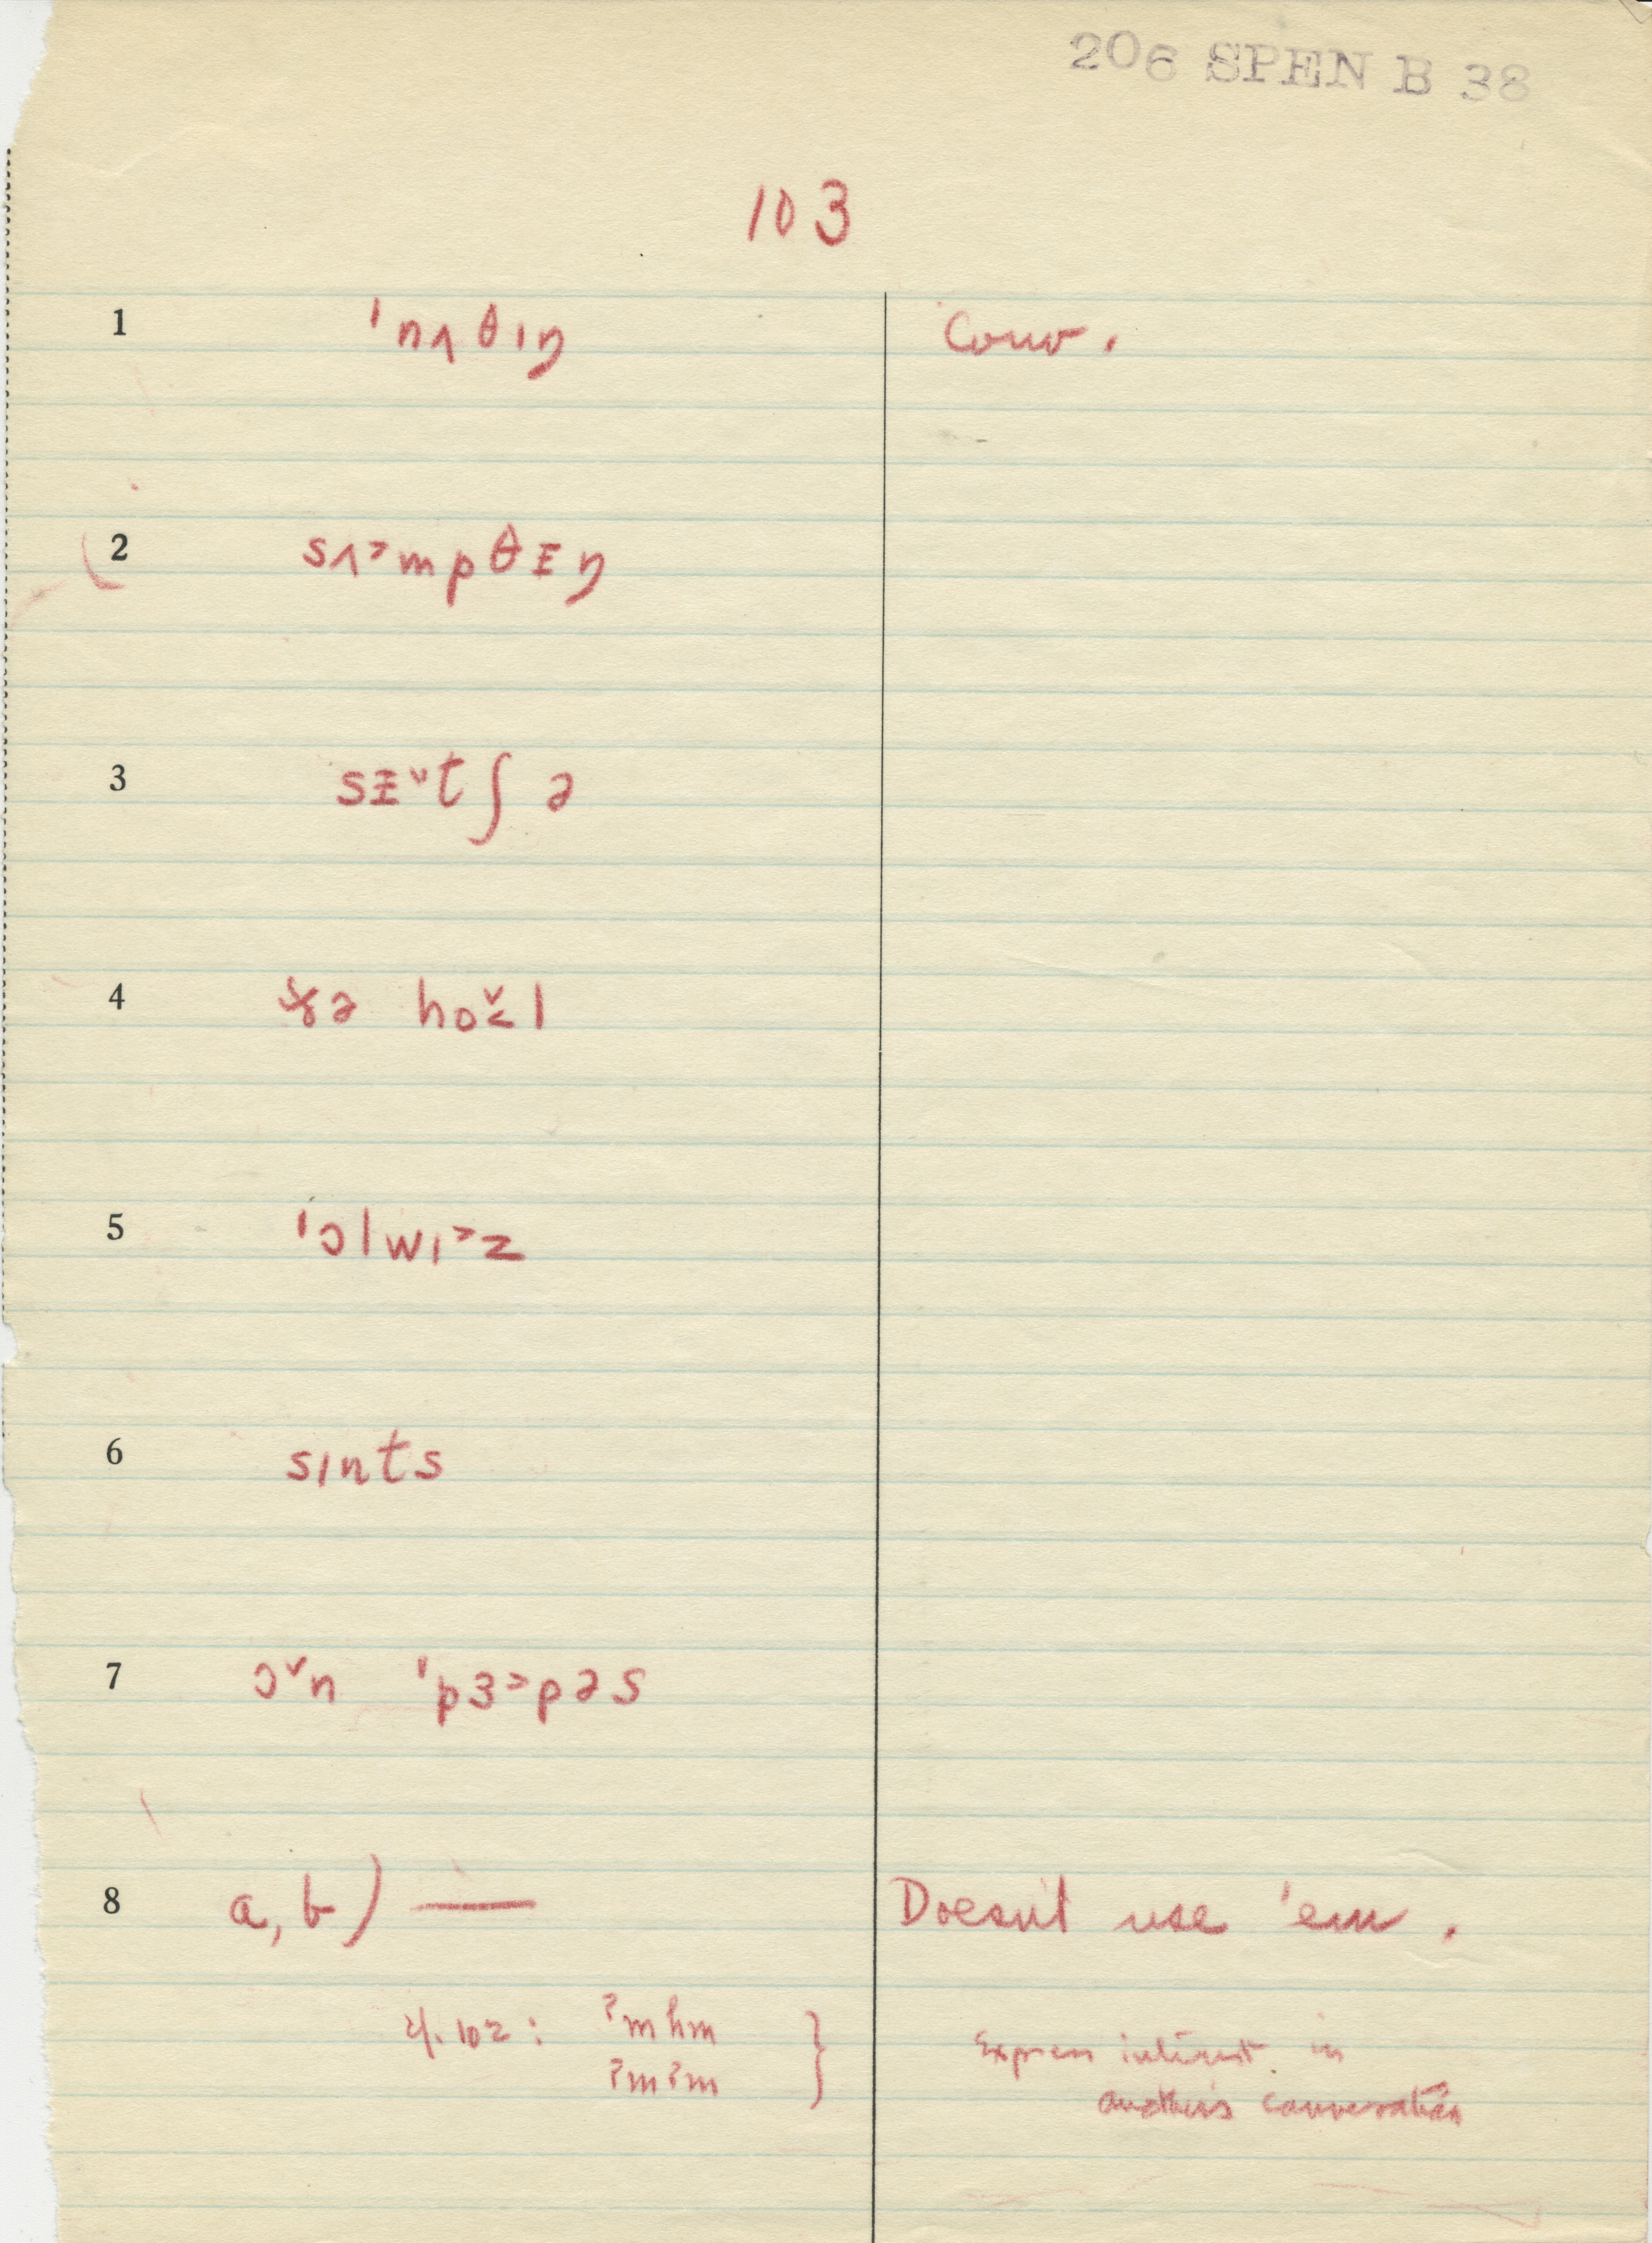 206 SPEN B 38
103
1 ˈnʌθɪŋ Conv.
2 sʌ˃mpθᵻŋ
3 sᵻ˅tʃə
4 ðə ho̬l
5 ˈɔlwɪ˃z
6 sɪnts
7 ɔ˅n ˈpɜ˃pəs
8 a, b) — Doesn't use 'em.
cf. 102: ʔmhm } Express interest in
ʔmʔm another's conversation